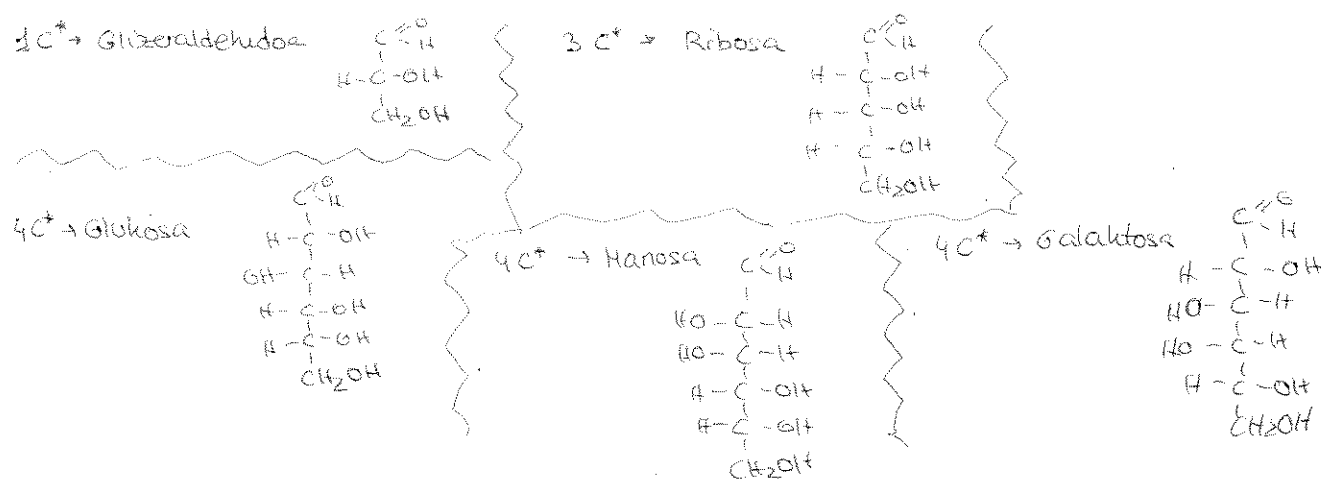 1C* → Glizeraldehidoa
C=O
H
H-C-OH
CH2OH
3 C* → Ribosa
C=O
H
H-C-OH
H-C-OH
H-C-OH
CH2OH
4C* → Glukosa
C=O
H
H-C-OH
OH-C-H
H-C-OH
H-C-OH
CH2OH
4C* → Manosa
C=O
H
HO-C-H
HO-C-H
H-C-OH
H-C-OH
CH2OH
4C* → Galaktosa
C=O
H
H-C-OH
HO-C-H
HO-C-H
H-C-OH
CH2OH